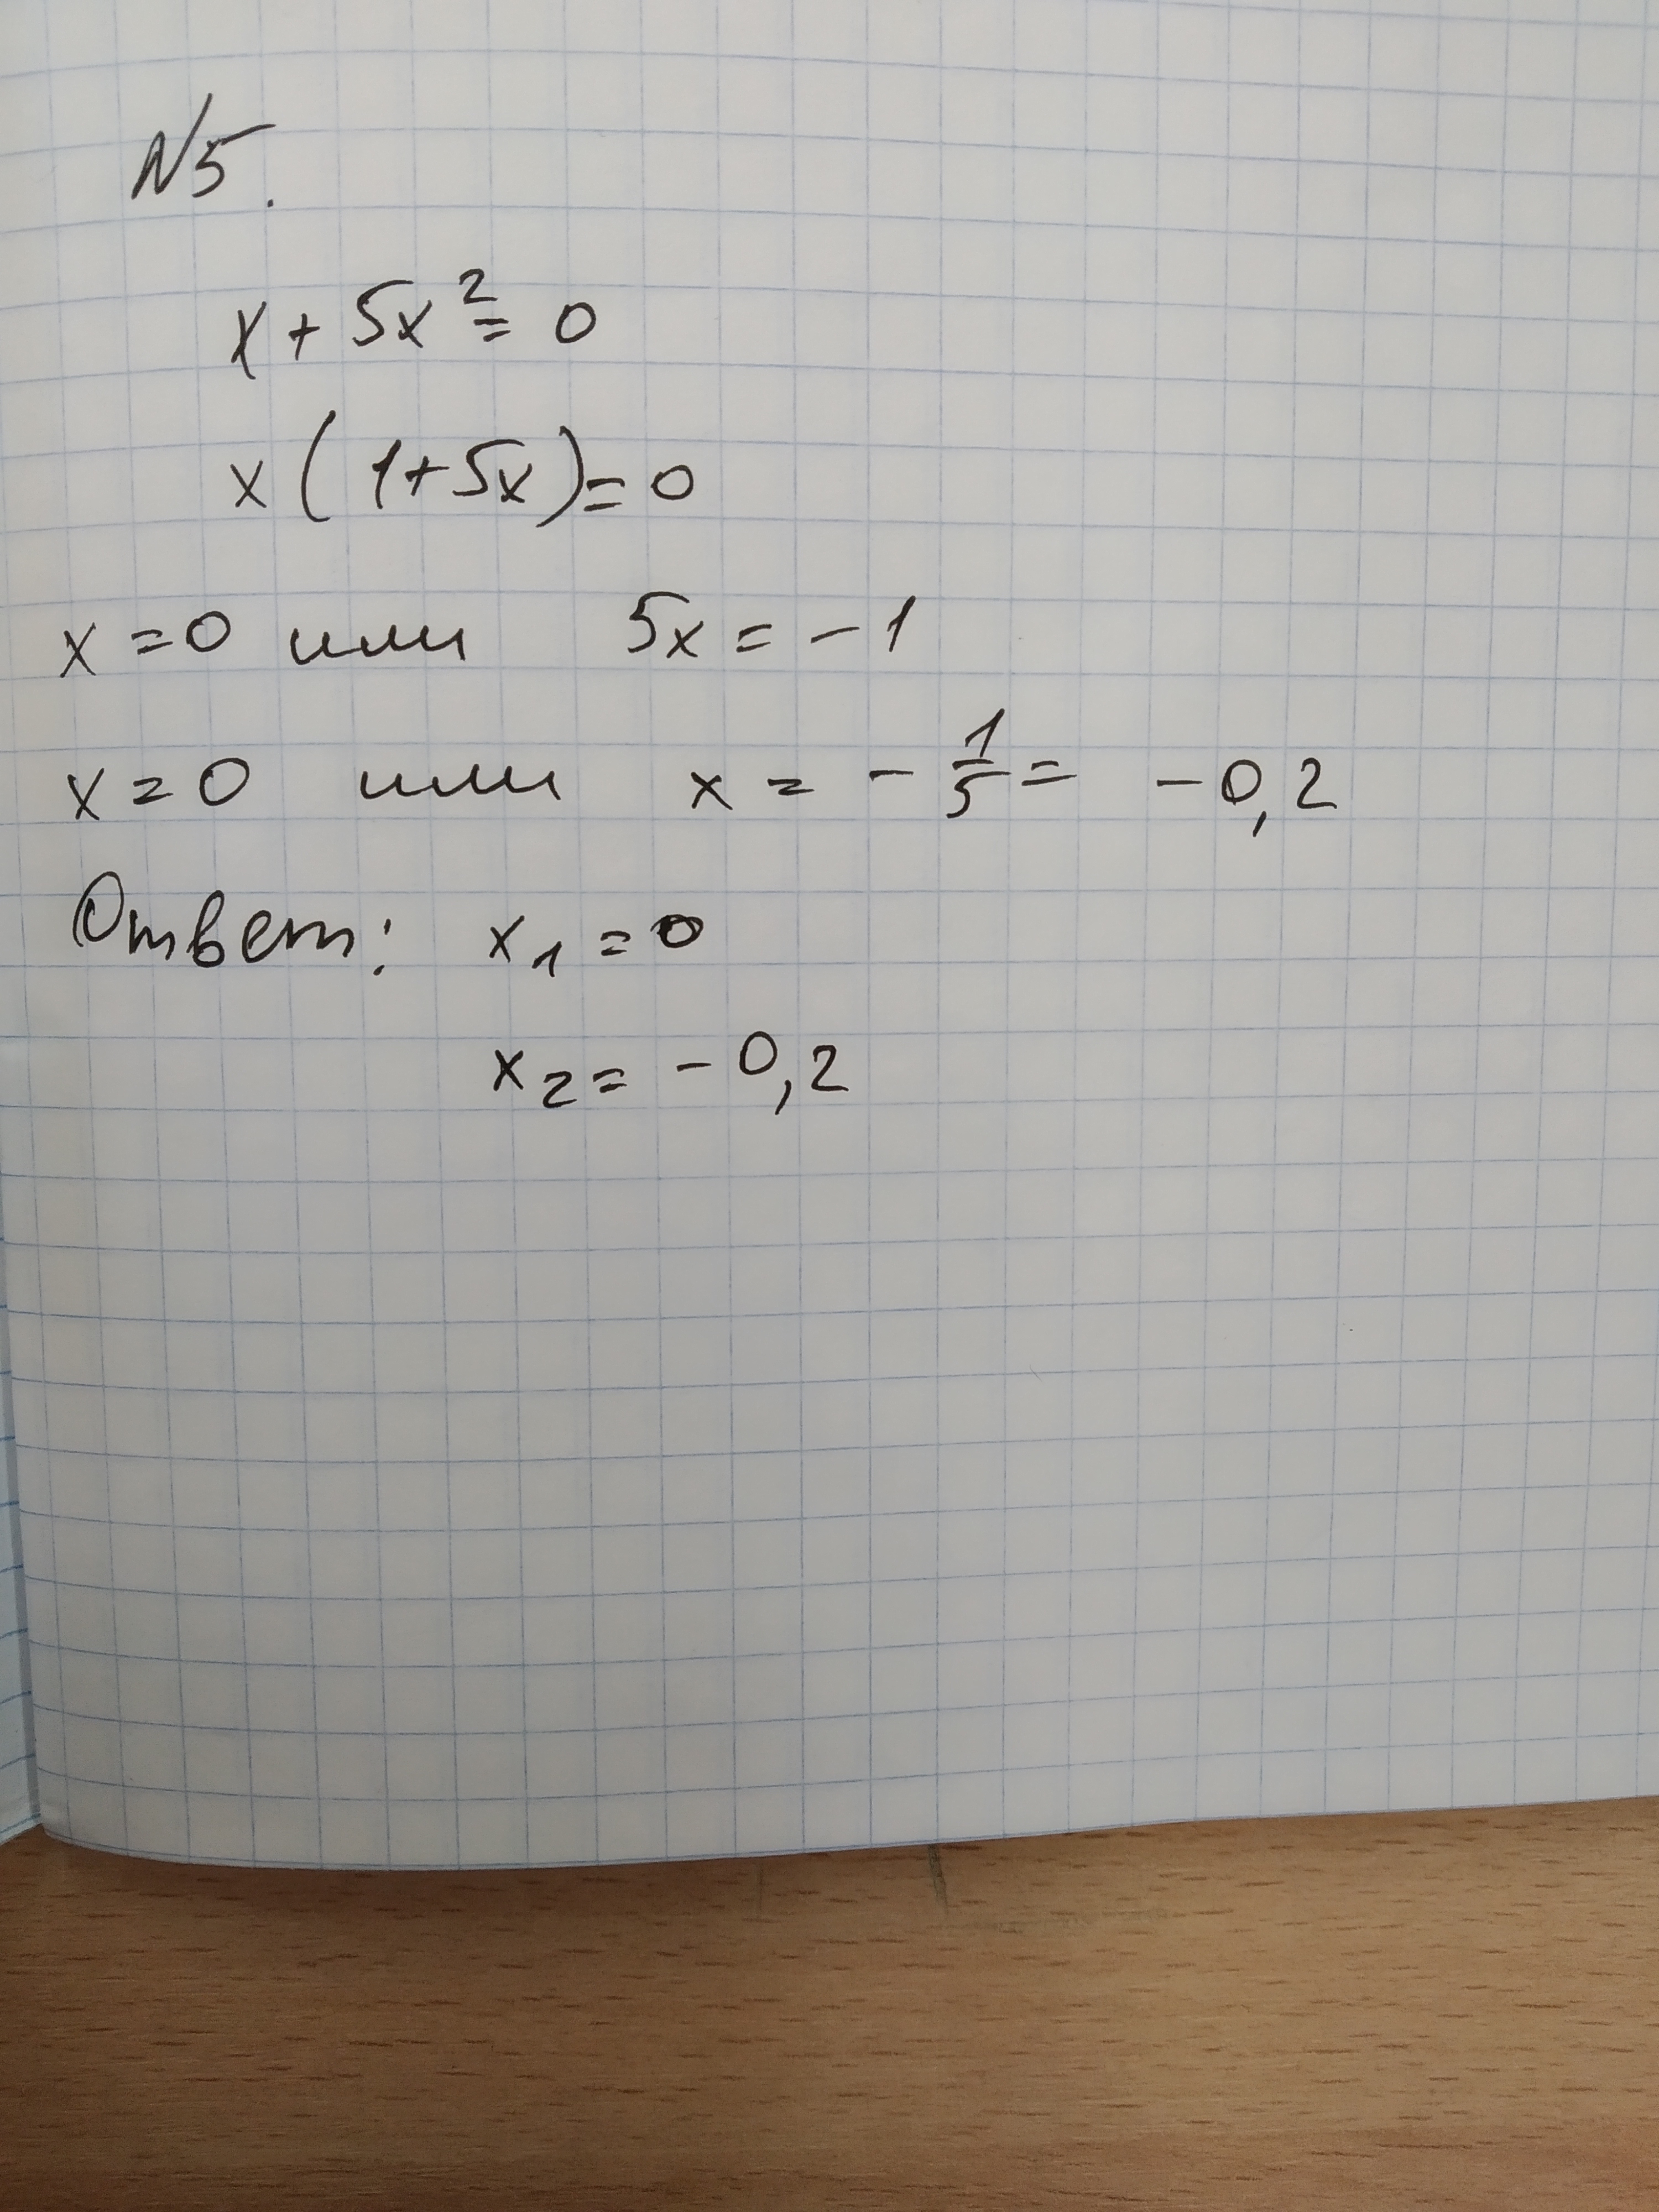 N5.
x + 5x² = 0
x(1+5x)=0
x=0 или 5x = -1
x=0 или x = - 1/5 = -0,2
Ответ: x₁ = 0
x₂ = -0,2